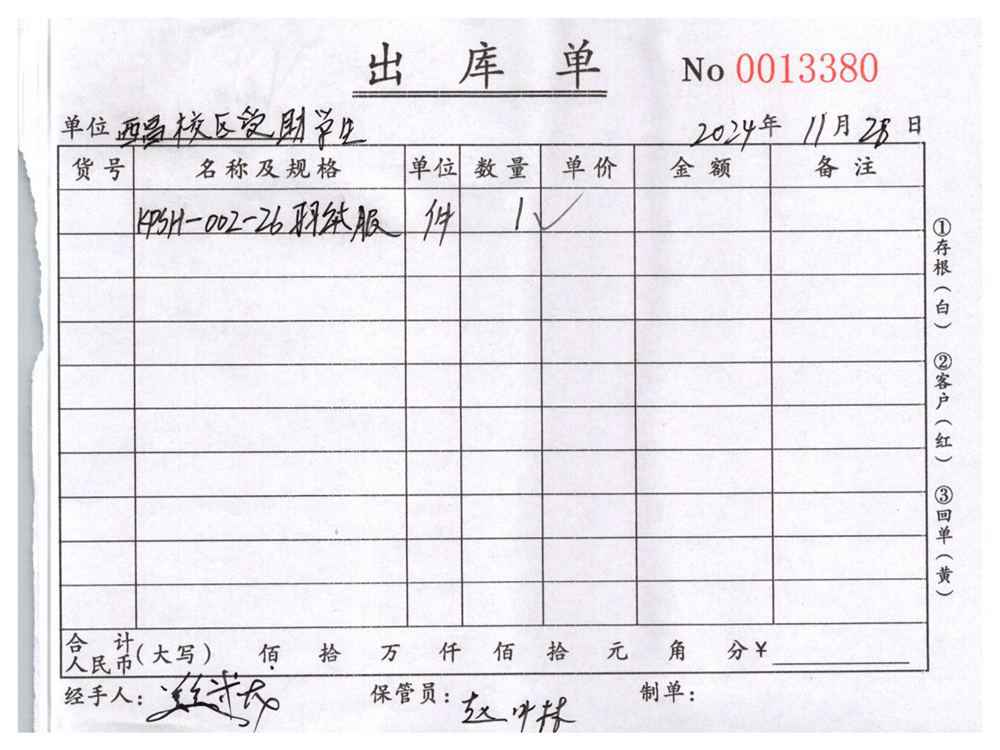 出库单 No 0013380
单位 西昌校区受助学生 2024年 11月 28日
货号 名称及规格 单位 数量 单价 金额 备注
KPSH-002-26 羽绒服 件 1 ✓
合计人民币(大写) 佰 拾 万 仟 佰 拾 元 角 分 ¥
经手人: 保管员: 赵 制单:
①存根(白) ②客户(红) ③回单(黄)